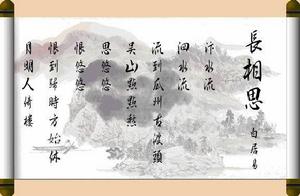 長相思
白居易
汴水流
泗水流
流到瓜州古渡頭
吴山點點愁
思悠悠
恨悠悠
恨到歸時方始休
月明人倚樓